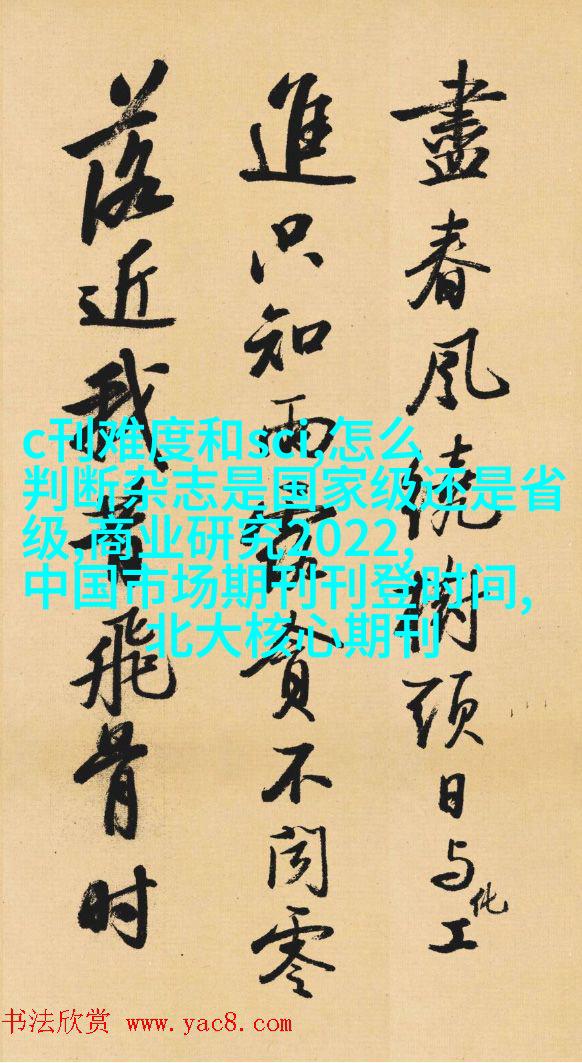 盡春風繞樹頭日与化工
進只知雨露貪不聞零
落近我昔飛骨时
c刊难度和sci,怎么
判断杂志是国家级还是省
级,商业研究2022,
中国市场期刊刊登时间,
北大核心期刊
书法欣赏 www.yac8.com